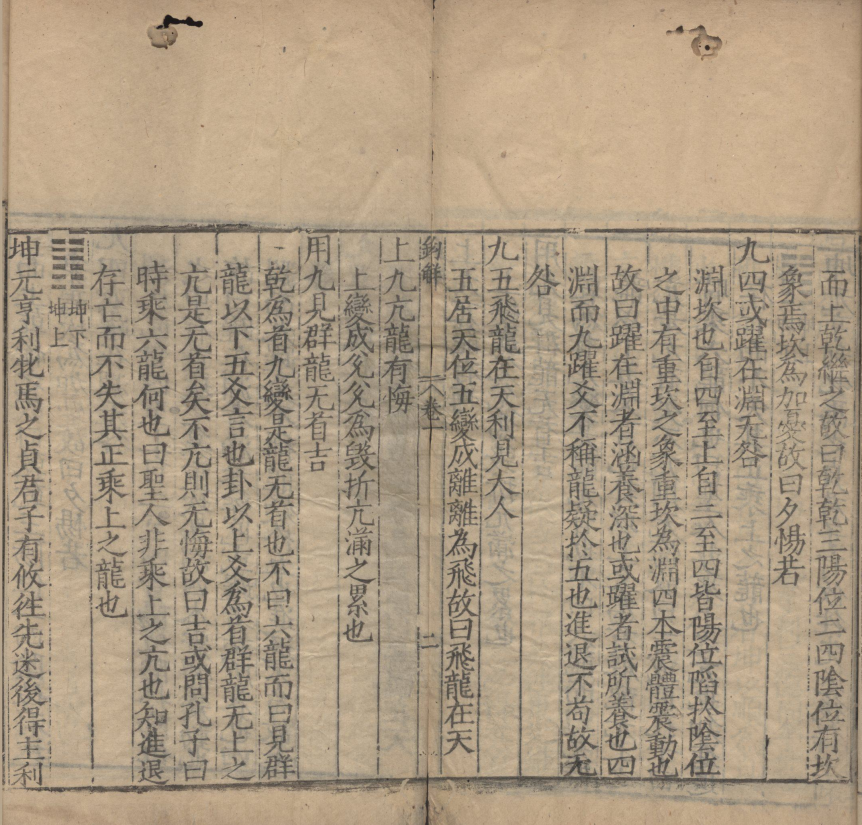 而上乾繼之故曰乾乾三陽位二四陰位有坎
象焉坎為加憂故曰夕惕若
九四或躍在淵无咎
淵坎也自四至上自二至四皆陽位陷於陰位
之中有重坎之象重坎為淵四本震體震動也
故曰躍在淵者涵養深也或躍者試所養也四
淵而九躍爻不稱龍疑於五也進退不苟故无
咎
九五飛龍在天利見大人
五居天位五變成離離為飛故曰飛龍在天
鈎解 卷一 二
上九亢龍有悔
上變成兌兌為毀折亢滿之累也
用九見群龍无首吉
乾為首九變是龍无首也不曰六龍而曰見群
龍以下五爻言也卦以上爻為首群龍无上之
亢是无首矣不亢則无悔故曰吉或問孔子曰
時乘六龍何也曰聖人非乘上之亢也知進退
存亡而不失其正乘上之龍也
䷁ 坤下 坤上
坤元亨利牝馬之貞君子有攸徃先迷後得主利